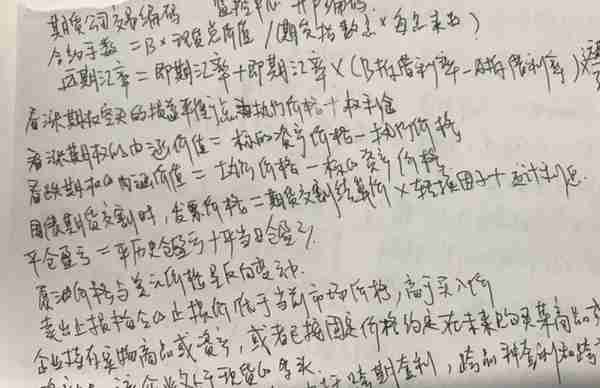 期货公司交易编码 监控中心 开户编码.
合约手数 = B × 现货总价值 / (期货指数点 × 每点乘数)
远期汇率 = 即期汇率 + 即期汇率 × (B拆借利率 - A拆借利率)
看涨期权买卖的损益平衡点 = 执行价格 + 权利金
看涨期权的内涵价值 = 标的资产价格 - 执行价格
看跌期权的内涵价值 = 执行价格 - 标的资产价格
国债期货交割时,发票价格 = 期货交割结算价 × 转换因子 + 应计利息.
平仓盈亏 = 平历史仓盈亏 + 平当日仓盈亏.
原油价格与美元价格呈反向变动.
卖出止损指令的止损价低于当前市场价格,高于买入价
企业持有实物商品或资产,或者已按固定价格约定在未来购买某商品或
该企业处于现货的多头.
跨期套利,跨品种套利和跨